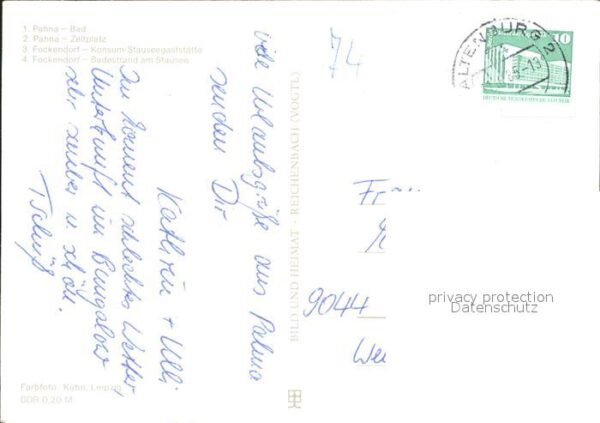 1. Pahna – Bad
2. Pahna – Zeltplatz
3. Fockendorf – Konsum-Stauseegaststätte
4. Fockendorf – Badestrand am Stausee
viele Urlaubsgrüße aus Pahna
senden Dir
Kathrin + Ulli
Im Moment schlechtes Wetter,
Unterkunft im Bungalow
sehr sauber u. schön.
Tschüß
Farbfoto: Kühn, Leipzig
DDR 0,20 M
BILD UND HEIMAT · REICHENBACH (VOGTL)
74
ALTENBURG 2
10
DEUTSCHE DEMOKRATISCHE REPUBLIK
9044
privacy protection
Datenschutz